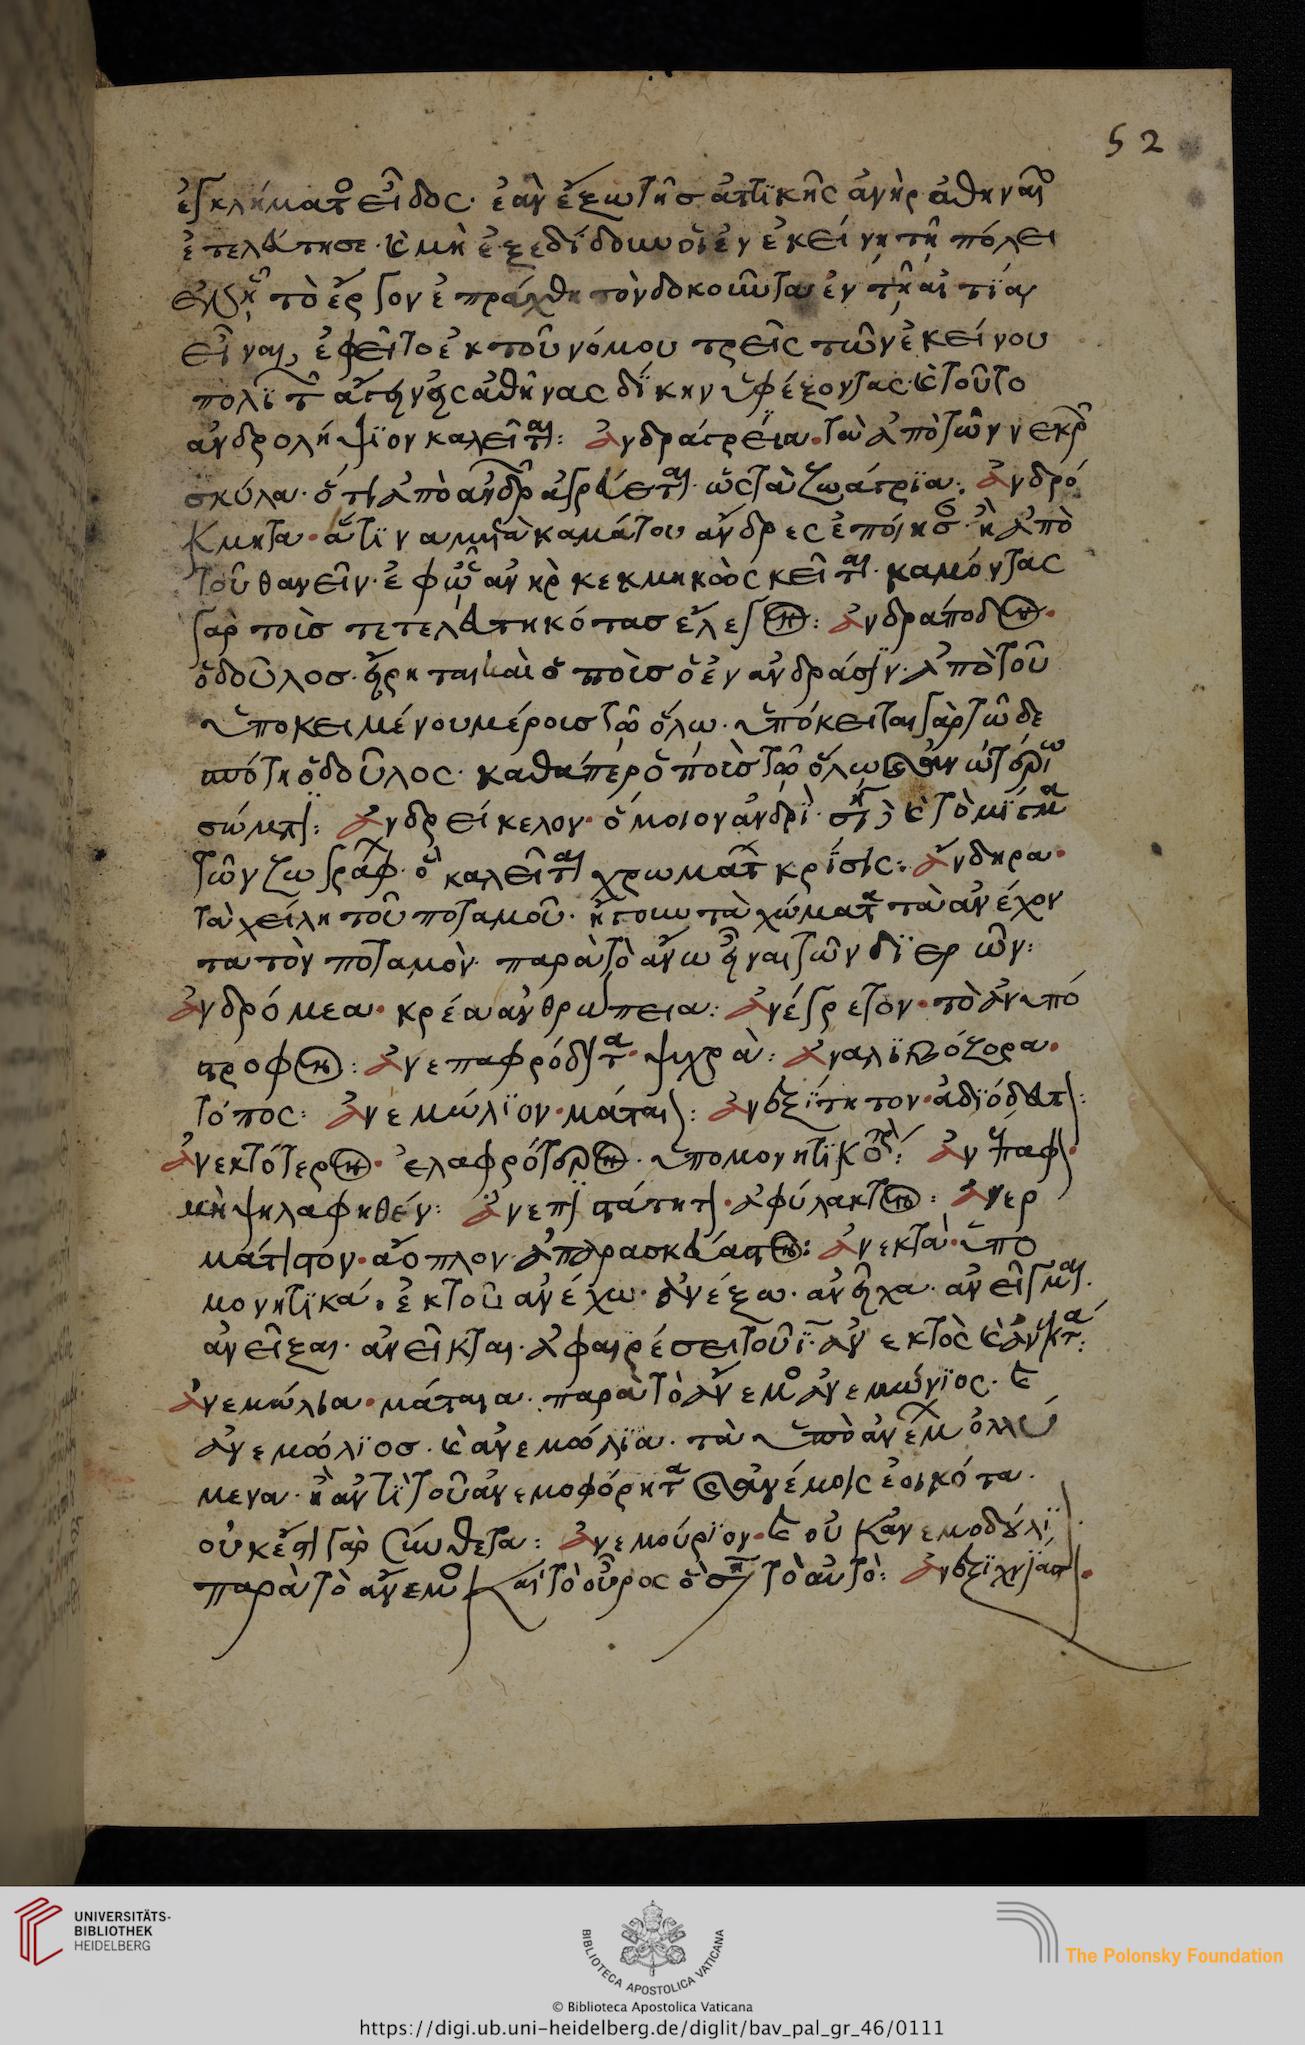 52
ἐγκλήματος εἶδος· ἐὰν ἔξω τῆς ἀττικῆς ἀνὴρ ἀθηναῖος
ἐτελεύτησε· καὶ μὴ ἐξεδίδουν οἱ ἐν ἐκείνη τῆ πόλει
τὸ ἔργον ἐπράχθη τὸν δοκοῦντα ἐν τῆ αἰτία
εἶναι, ἐφεῖτο ἐκ τοῦ νόμου τρεῖς τῶν ἐκείνου
πολιτῶν ἀθήνας δίκην ὑφέξοντας· καὶ τοῦτο
ἀνδρολήψϊον καλεῖται: ἀνδράγρεια· τὰ ἀπὸ τῶν νεκρῶν
σκύλα· ὅτι ἀπὸ ἀνδρῶν ἀγρεύεται· ὡς τὰ ζωάγρϊα: ἀνδρό
κμητα· ἅτϊνα μετὰ καμάτου ἄνδρες ἐποίησαν· ἢ ἀπὸ
τοῦ θανεῖν· ἐφ' ᾧ ἀνὴρ κεκμηκὼς κεῖται· καμόντας
γὰρ τοὺς τετελευτηκότας ἔλεγον: ἀνδράποδον·
ὁ δοῦλος· εἴρηται καὶ ὁ ποὺς ὁ ἐν ἀνδράσϊν· ἀπὸ τοῦ
ὑποκειμένου μέρους τῶ ὅλω· ὑπόκειται γὰρ τῶ δε
σπότη ὁ δοῦλος· καθάπερ ὁ ποὺς τῶ ὅλω
σώματι: ἀνδρείκελον· ὅμοιον ἀνδρὶ· καὶ τὸ μῖγμα
τῶν ζωγράφων· ὃ καλεῖται χρωμάτων κρίσις: ἄνδηρα·
τὰ χείλη τοῦ ποταμοῦ· ἤγουν τὰ χώματα τὰ ἀνέχον
τα τὸν ποταμὸν· παρὰ τὸ ἄνω εἶναι τῶν διερῶν:
ἀνδρόμεα· κρέα ἀνθρώπεια: ἀνέγρετον· τὸ ἀνυπό
στροφον: ἀνεπαφρόδιτα· ψυχρὰ: ἀναλϊβόζορα·
τόπος: ἀνεμώλϊον· μάταιον: ἀνεξίτητον· ἀδϊόδευτον:
ἀνεκτότερον· ἐλαφρότερον· ὑπομονητϊκότερον: ἀνέπαφον·
μὴ ψηλαφηθέν: ἀνεπιστάτητον· ἀφύλακτον: ἀνερ
μάτιστον· ἄοπλον· ἀπαρασκεύαστον: ἀνεκτὰ· ὑπο
μονητϊκά· ἐκ τοῦ ἀνέχω· ἀνέξω· ἀνεῖχα· ἀνεῖγμαι·
ἀνεῖξαι· ἀνεῖκται· ἀφαιρέσει τοῦ ϊ· ἀνεκτὸς καὶ ἀνεκτά:
ἀνεμώλια· μάταια· παρὰ τὸ ἄνεμος ἀνεμώνϊος· καὶ
ἀνεμώλϊος· καὶ ἀνεμώλϊα· τὰ ὑπὸ ἀνέμων ὀλλύ
μενα· ἢ ἀντὶ τοῦ ἀνεμοφόρητα καὶ ἀνέμοις ἐοικότα·
οὐκ ἔστι γὰρ σύνθετα: ἀνεμούριον· καὶ οὐκ ἀνεμοδούλι
παρὰ τὸ ἄνεμος καὶ τὸ οὖρος ὃ σημαίνει τὸ αὐτό: ἀνεξιχνίαστον·
UNIVERSITÄTS-
BIBLIOTHEK
HEIDELBERG
BIBLIOTECA APOSTOLICA VATICANA
The Polonsky Foundation
© Biblioteca Apostolica Vaticana
https://digi.ub.uni-heidelberg.de/diglit/bav_pal_gr_46/0111